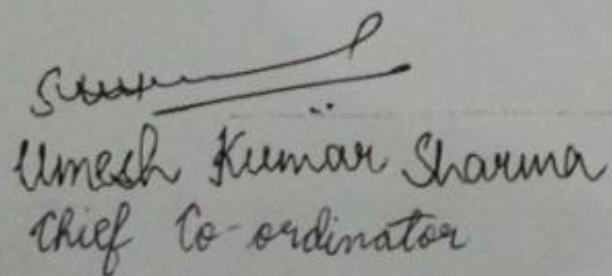 Umesh Kumar Sharma
Chief Co-ordinator